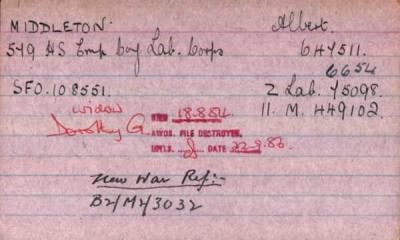 MIDDLETON. Albert.
549 HS Emp Coy Lab. Corps 647511.
6654
SFO. 108551. Z Lab. 45098.
widow 18.8.54. 11. M. 449102.
Dorothy G. AWDS. FILE DESTROYED,
INTLS. DATE 22.9.86.
New War Ref:-
B2/M2/3032